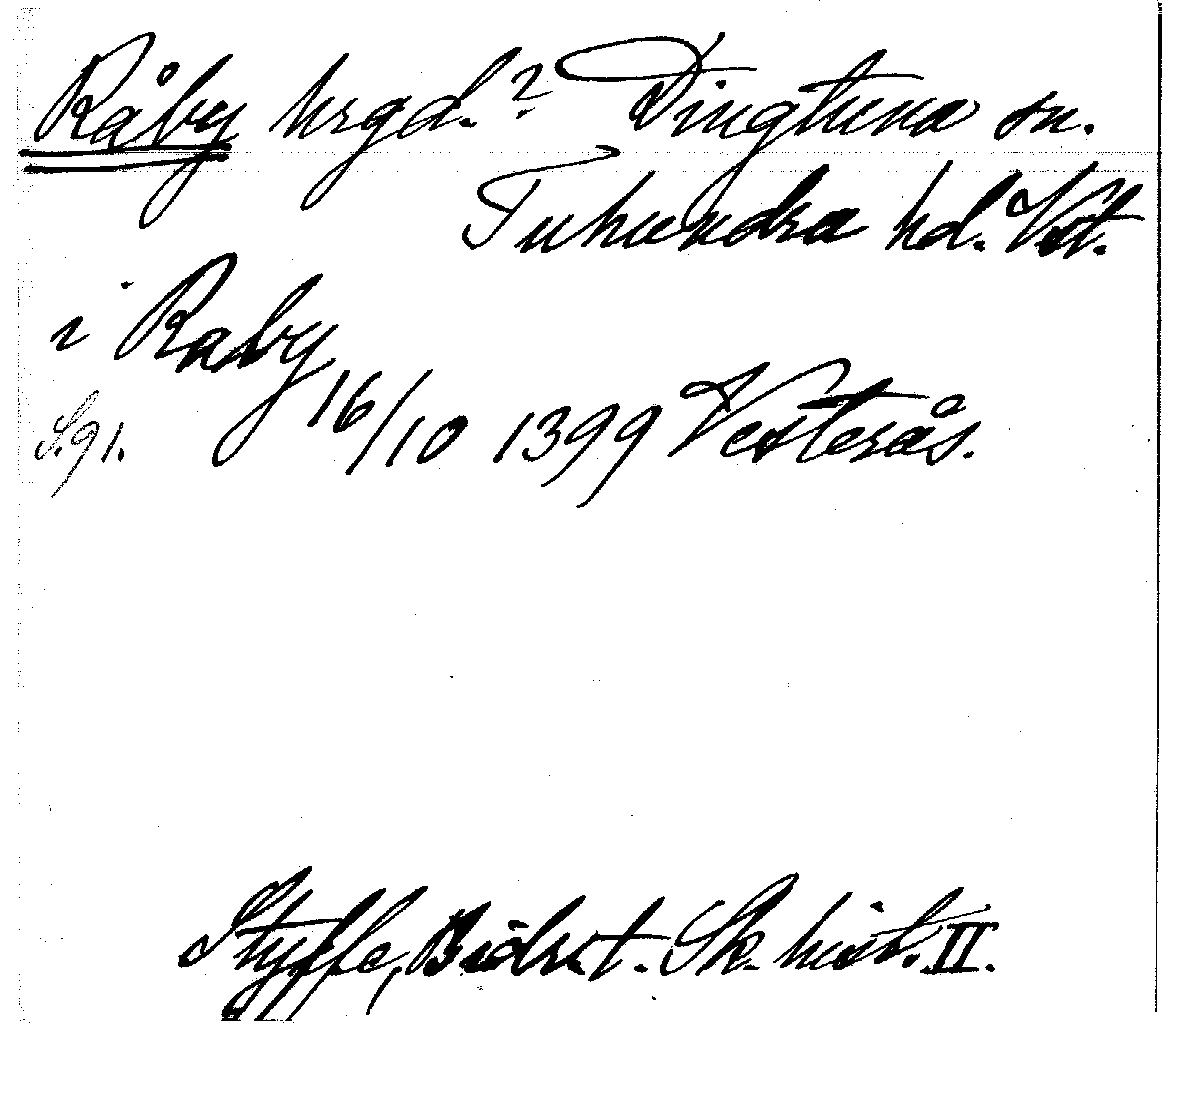 Råby hrgd.? Dingtuna sn.
Tuhundra hd. Vstm.
i Raby
16/10 1399 Vesterås.
S. 91.
Styffe, Bidr. t. Sk. hist. II.